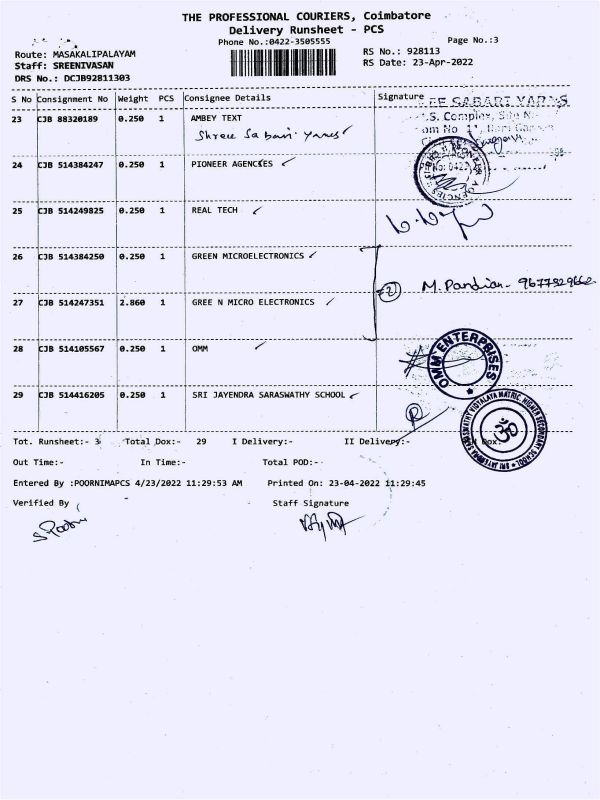 THE PROFESSIONAL COURIERS, Coimbatore
Delivery Runsheet - PCS
Phone No.:0422-3505555
Page No.:3
Route: MASAKALIPALAYAM
RS No.: 928113
Staff: SREENIVASAN
RS Date: 23-Apr-2022
DRS No.: DCJB92811303
S No Consignment No Weight PCS Consignee Details Signature
EE SABARI YARNS
23 CJB 88320189 0.250 1 AMBEY TEXT
Shree Sabari Yarns
24 CJB 514384247 0.250 1 PIONEER AGENCIES
25 CJB 514249825 0.250 1 REAL TECH
26 CJB 514384250 0.250 1 GREEN MICROELECTRONICS
2 M. Pandian - 9677929662
27 CJB 514247351 2.860 1 GREE N MICRO ELECTRONICS
28 CJB 514105567 0.250 1 OMM
OMM ENTERPRISES
29 CJB 514416205 0.250 1 SRI JAYENDRA SARASWATHY SCHOOL
SRI JAYENDRA SARASWATHY VIDYALAYA MATRIC. HIGHER SECONDARY SCHOOL
ॐ
R
Tot. Runsheet:- 3 Total Dox:- 29 I Delivery:- II Delivery:- N Dox:
Out Time:- In Time:- Total POD:-
Entered By :POORNIMAPCS 4/23/2022 11:29:53 AM Printed On: 23-04-2022 11:29:45
Verified By Staff Signature